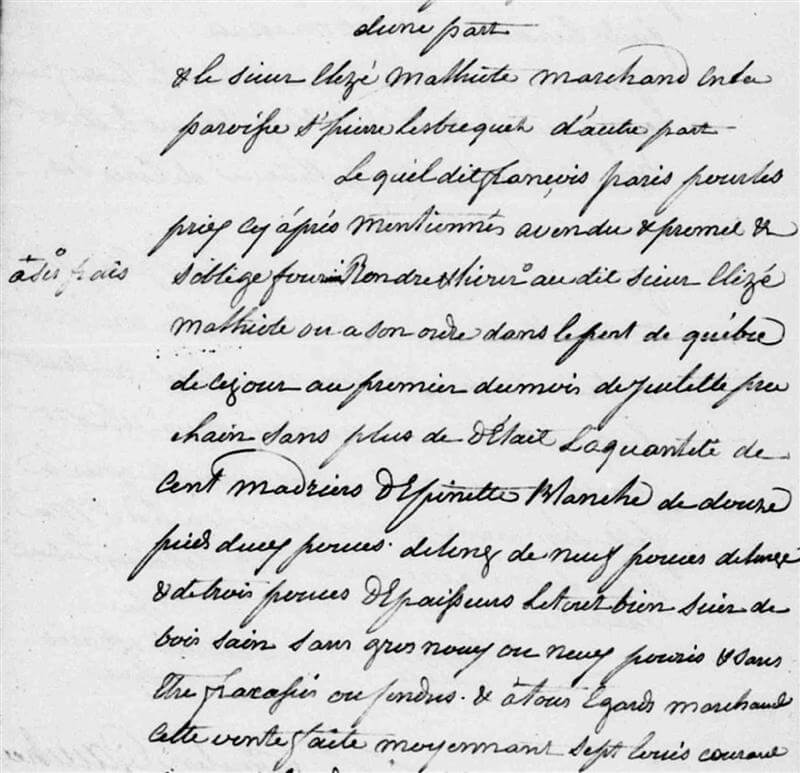 d'une part
& le sieur Elizé Mathiote marchand en la
paroisse St pierre Lesbecquets d'autre part
Le quel dit françois paris pour les
prix cy après mentionnés a vendu & promet &
à ses frais
s'oblige fournir Rendre & livrer au dit sieur Elizé
Mathiote ou a son ordre dans le port de québec
de ce jour au premier du mois de Juillette pro
chain sans plus de détail La quantité de
cent madriers D'Epinette Blanche de douze
pieds deux pouces de long de neuf pouces de large
& de trois pouces D'Epaisseurs Le tout bien siés de
bois sain sans gros nouds ou neuds pouris & sans
Etre fracassés ou fendus. & à tous Egards marchand
Cette vente faite moyennant sept louis courant